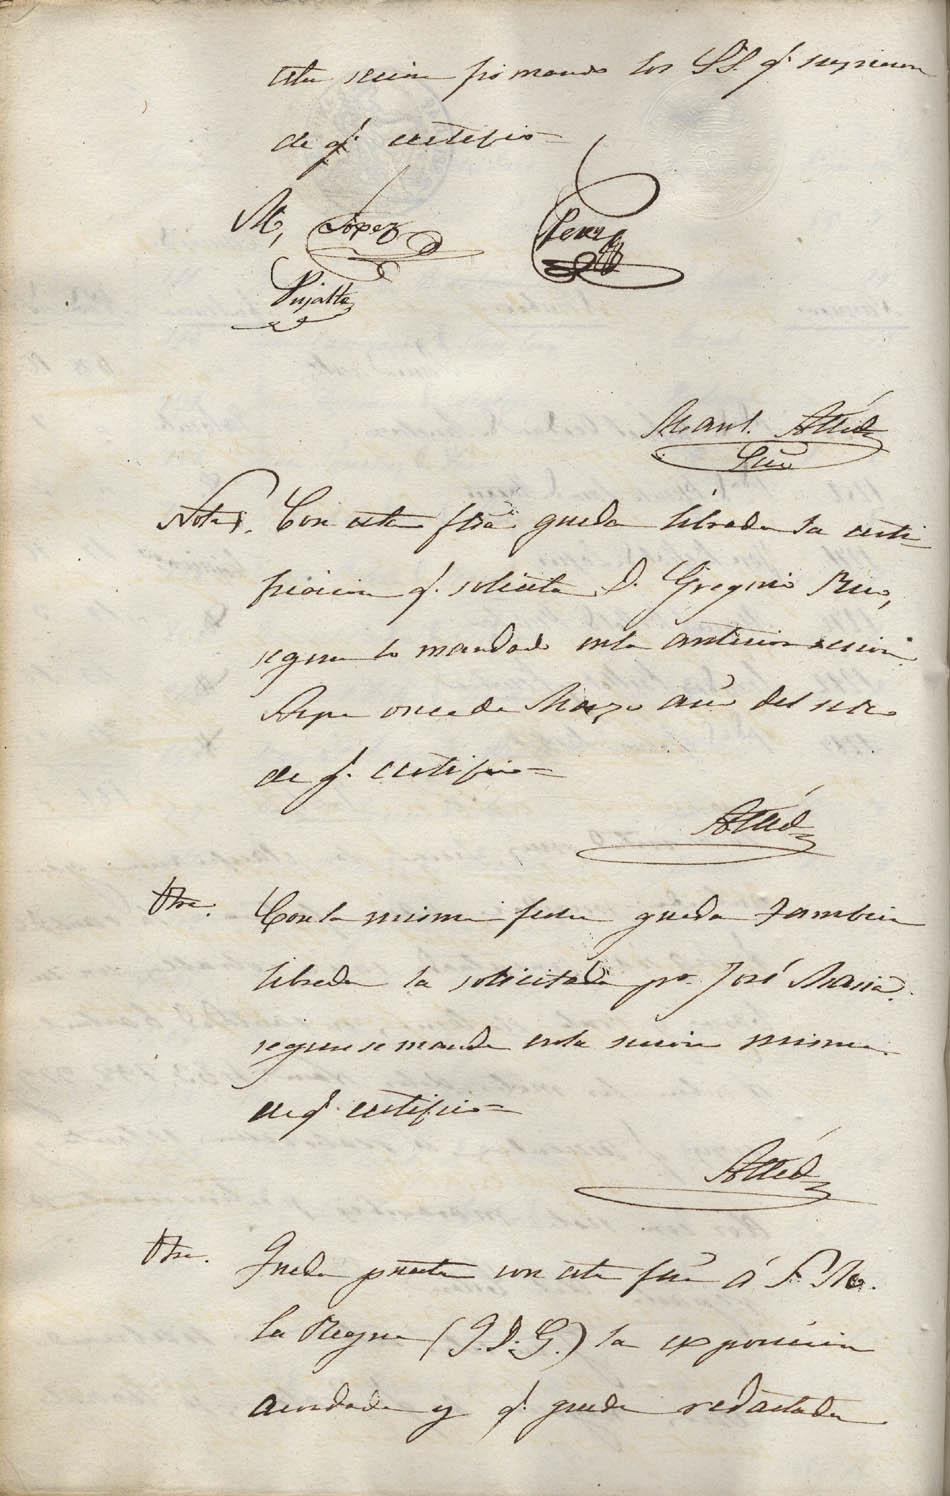 esta sesion firmando los SS. q.e supieron
de q.e certifico=
M, Lopez Perez
Pujalte
Man.l Alted
Srio
Nota. Con esta fha queda librada la certi-
ficacion q.e solicita D. Gregorio Rico,
segun lo mandado en la anterior sesion.
Aspe once de Marzo año del sello
de q.e certifico=
Alted
Otra. Con la misma fecha queda tambien
librada la solicitada p.r José Maria
segun se manda en la sesion misma
de q.e certifico=
Alted
Otra. Queda puesta con esta fha á S. M.
la Reyna (Q.D.G.) la exposicion
acordada y q.e queda redactada